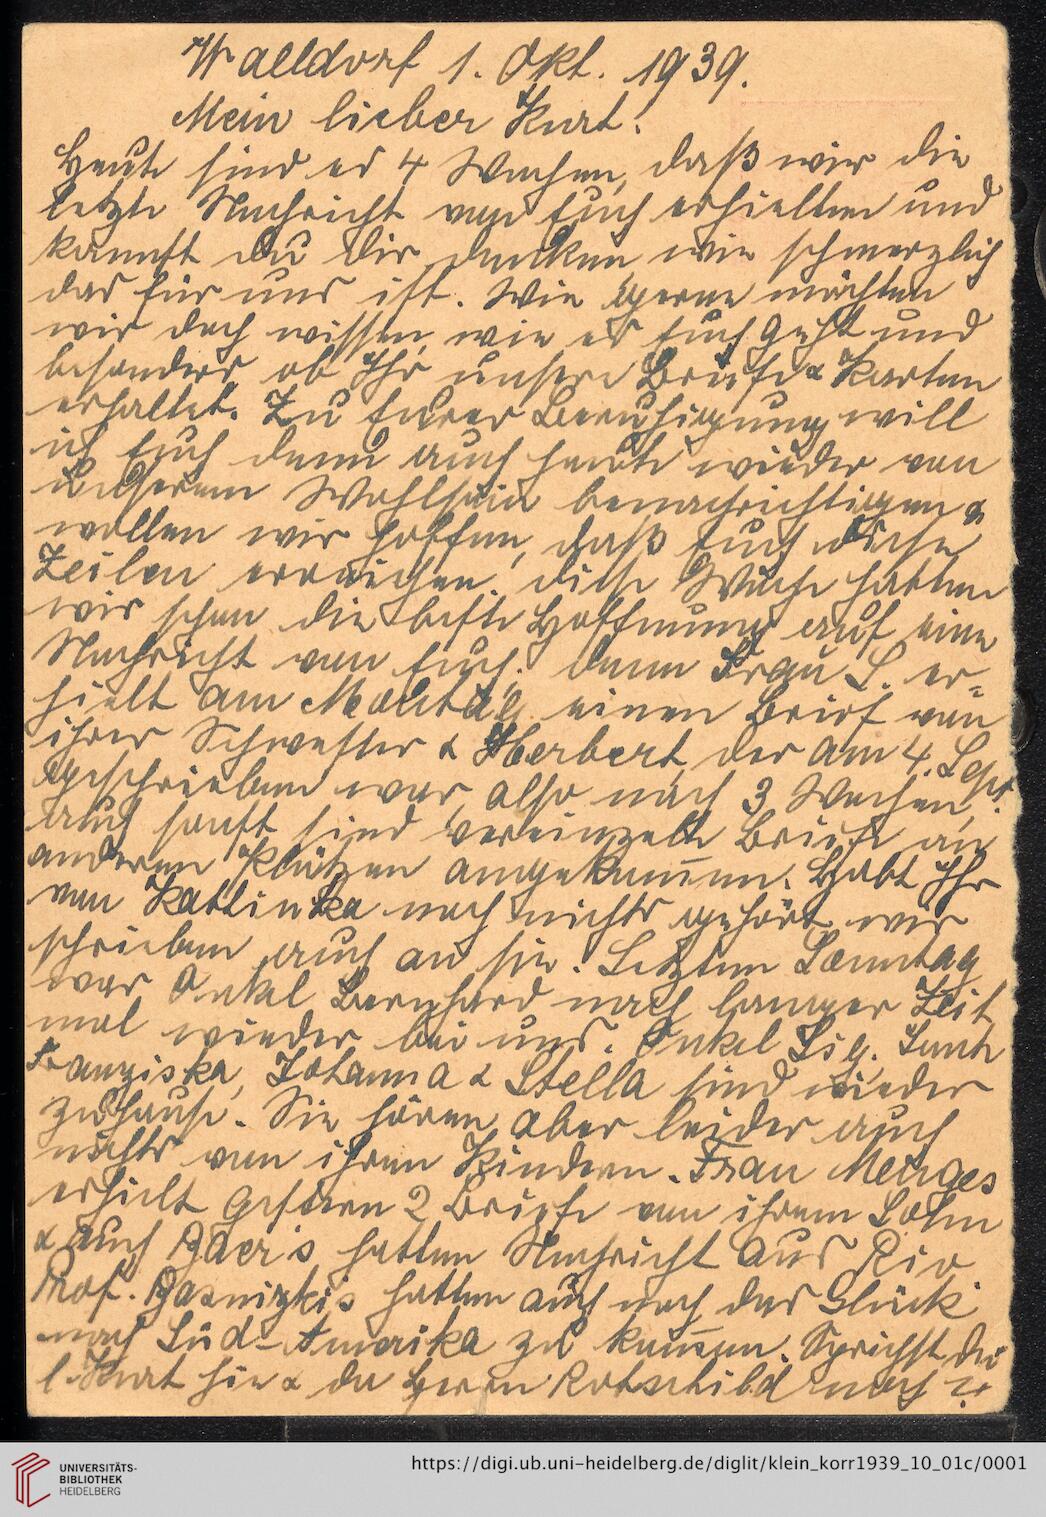 Walldorf 1. Okt. 1939.
Mein lieber Kurt!
Heute sind es 4 Wochen, daß wir die
letzte Nachricht von Euch erhielten und
kannst Du Dir denken, wie schmerzlich
das für uns ist. Wie gerne möchten
wir doch wissen, wie es Euch geht und
besonders, ob Ihr unsere Briefe & Karten
erhaltet. Zu Eurer Beruhigung will
ich Euch denn auch heute wieder von
unserem Wohlsein benachrichtigen &
wollen wir hoffen, daß Euch diese
Zeilen erreichen. Diese Woche hatten
wir schon die beste Hoffnung auf eine
Nachricht von Euch, denn Frau S. er-
hielt am Montag einen Brief von
ihrer Schwester & Herbert, der am 4. Sept.
geschrieben war, also nach 3 Wochen,
auch sonst sind vereinzelte Briefe an
anderen Plätzen angekommen. Habt Ihr
von Kätlinka noch nichts gehört, wir
schrieben auch an sie. Letzten Sonntag
war Onkel Bernhard nach langer Zeit
mal wieder bei uns. Onkel Sig, Tante
Franziska, Johanna & Stella sind wieder
zuhause. Sie hören aber leider auch
nichts von ihren Kindern. Frau Menges
erhielt gestern 2 Briefe von ihrem Sohn
& auch Baer's hatten Nachricht aus Rio
Prof. hatten auch noch das Glück
nach Süd-Amerika zu kommen. Sprichst Du
l. Kurt hie & da Herrn Rotschild noch?